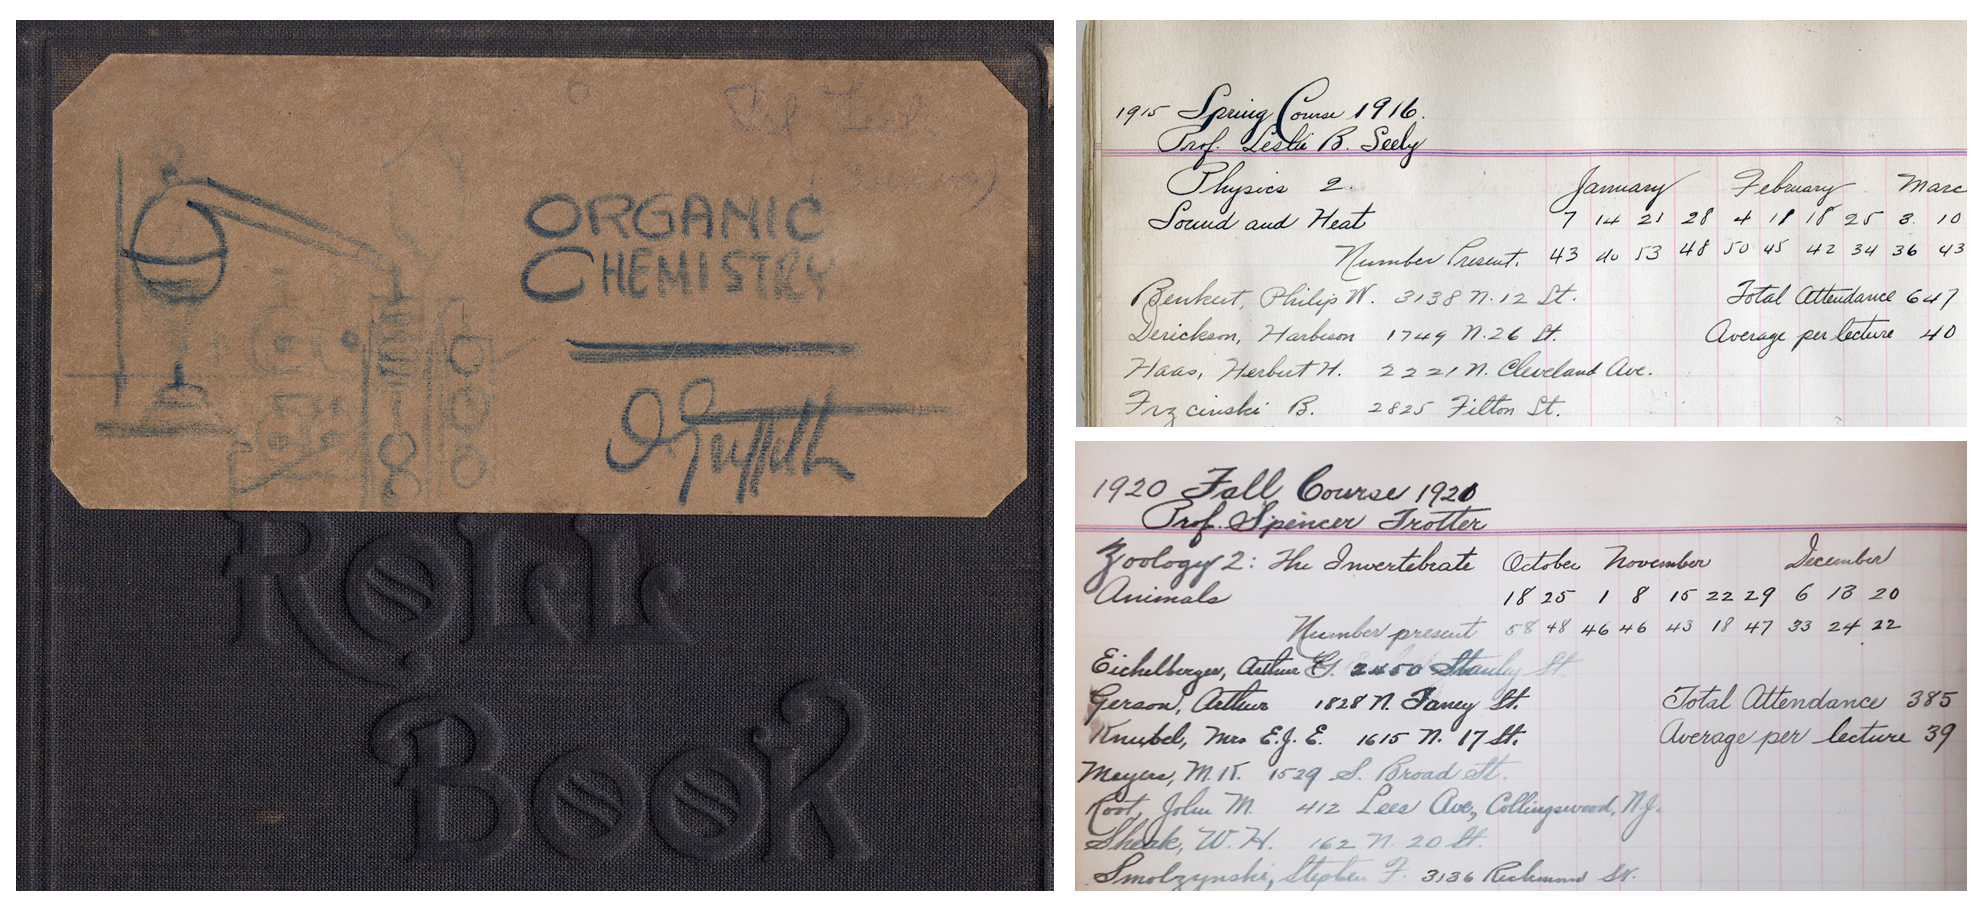 6
ORGANIC
CHEMISTRY
Griffith
ROLL
BOOK
1915 Spring Course 1916.
Prof. Leslie B. Seely
Physics 2. January February Marc
Sound and Heat 7 14 21 28 4 11 18 25 3. 10
Number Present. 43 40 53 48 50 45 42 34 36 43
Benkert, Philip W. 3138 N. 12 St. Total Attendance 647
Derickson, Harbeson 1749 N. 26 St. Average per lecture 40
Haas, Herbert H. 2221 N. Cleveland Ave.
Frzcinski B. 2825 Filton St.
1920 Fall Course 1920
Prof. Spencer Trotter
Zoology 2: The Invertebrate October November December
Animals 18 25 1 8 15 22 29 6 13 20
Number present 58 48 46 46 43 18 47 33 24 22
Eichelberger, Arthur G. 2450 Stanley St.
Gerson, Arthur 1828 N. Taney St. Total Attendance 385
Knubel, Mrs E.J.E. 1615 N. 17 St. Average per lecture 39
Meyers, M.K. 1529 S. Broad St.
Root, John M. 412 Lees Ave., Collingswood, N.J.
Sheak, W. H. 162 N. 20 St.
Smolzynski, Stephen F. 3136 Richmond St.